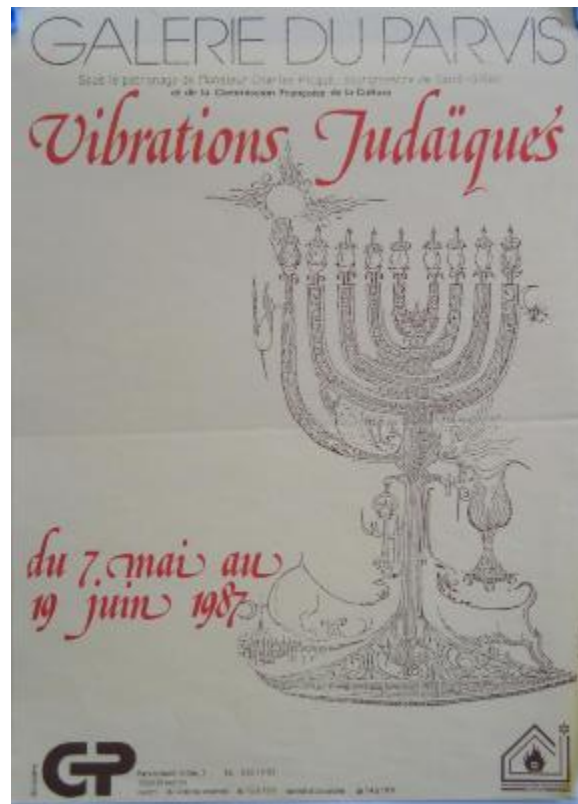 GALERIE DU PARVIS
Sous le patronage de Monsieur Charles Picqué, Bourgmestre de Saint-Gilles
et de la Commission Française de la Culture
Vibrations Judaïques
du 7 mai au
19 juin 1987
GP